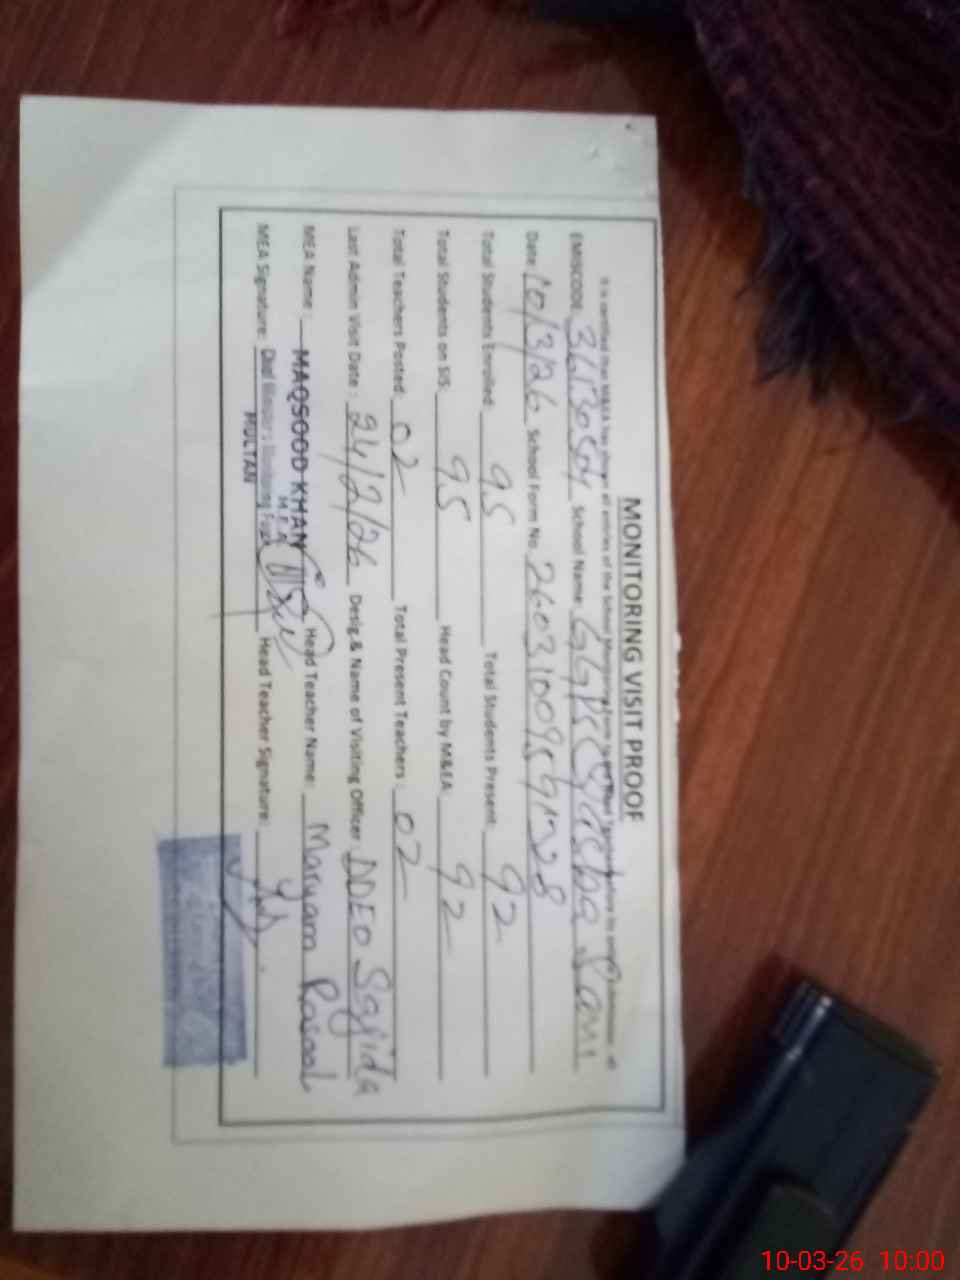 MONITORING VISIT PROOF
It is certified that M&EA has shown all entries of the School Monitoring Form to
EMISCODE: School Name: GGPS Qasba
Date: 10/3/26 School Form No.
Total Students Enrolled: 95 Total Students Present: 92
Total Students on SIS: 95 Head Count by M&EA: 92
Total Teachers Posted: 02 Total Present Teachers: 02
Last Admin Visit Date: 24/2/26 Desig.& Name of Visiting Officer DDEO Sajida
MEA Name: MAQSOOD KHAN Head Teacher Name: Maryam Rasool
M E A
MEA Signature: Head Teacher Signature:
MULTAN
10-03-26 10:00